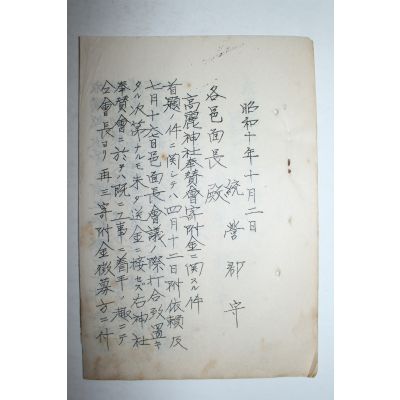 昭和十年十月二日
統營郡守
各邑面長殿
高麗神社奉賛會寄附金ニ関スル件
首題ノ件ニ関シテハ四月十二日附依頼及
七月十六日邑面長會議ノ際打合致置キ
タル次第ナルモ未タ送金ニ接セス右神社
奉賛會ニ於テハ既ニ工事ニ着手ノ趣ニテ
仝會長ヨリ再三寄附金徴募方ニ付